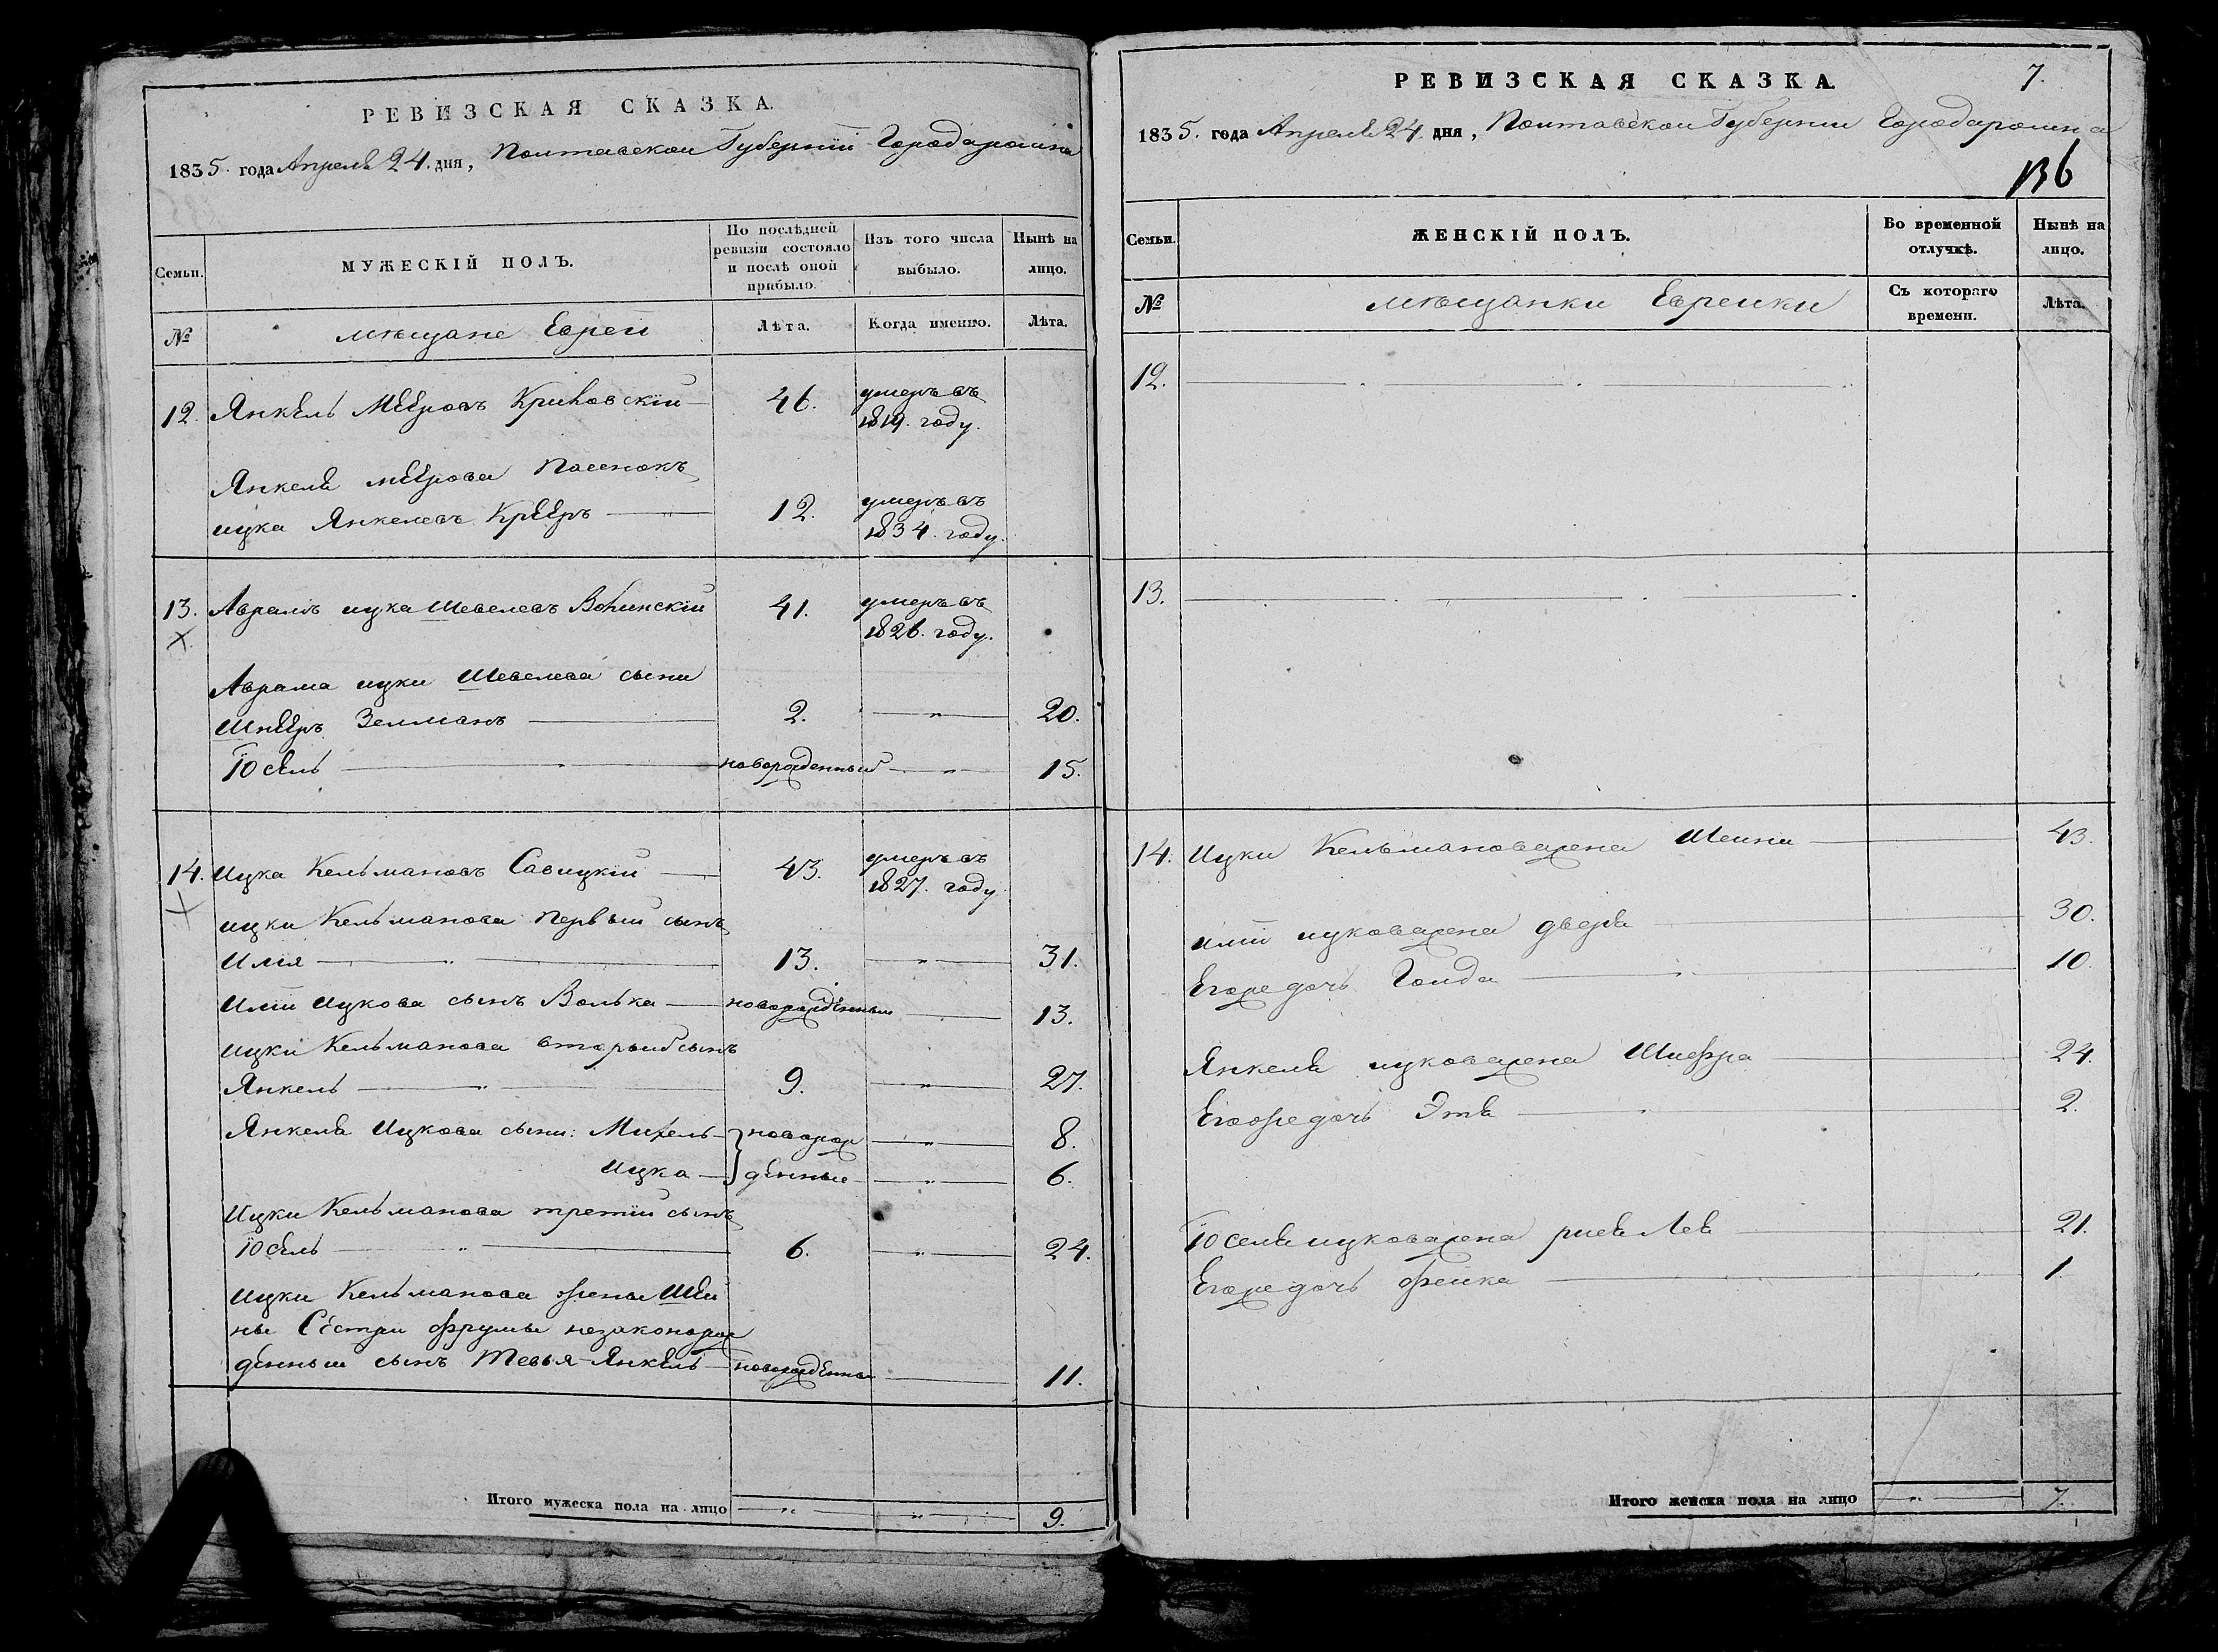 РЕВИЗСКАЯ СКАЗКА.
1835. года Апреля 24. дня, Полтавской Губернии Города
Семьи.
МУЖЕСКІЙ ПОЛЪ.
По послѣдней ревизіи состояло и послѣ оной прибыло.
Изъ того числа выбыло.
Нынѣ на лицо.
№
мѣщане Евреи
Лѣта.
Когда именно.
Лѣта.
12. Янкель Мееровъ Криковскій 46. умеръ въ
1819. году.
Янкеля Меерова Пасенокъ
ицка Янкелевъ 12. умеръ въ
1834. году.
13. Аврамъ ицка Шевелевъ 41. умеръ въ
1826. году.
Аврама ицки Шевелева сыни
Шнееръ Зелманъ 2. " 20.
Іосель новорожденный " 15.
14. Ицка Кельмановъ Савицкій 43. умеръ въ
1827. году.
ицки Кельманова первый сынъ
Илія 13. " 31.
Иліи Ицкова сынъ Волька новорожденный 13.
ицки Кельманова вторый сынъ
Янкель 9. " 27.
Янкеля Ицкова сыни: Михель новорож " 8.
ицка денные " 6.
Ицки Кельманова третій сынъ
Іосель 6. " 24.
Ицки Кельманова жены Шей
ны Сестры Фрумы незаконорож
денный сынъ Тевья-Янкель новорожденны 11.
Итого мужеска пола на лицо " " 9.
РЕВИЗСКАЯ СКАЗКА. 7.
1835. года Апреля 24. дня, Полтавской Губернии Города
136
Семьи.
ЖЕНСКІЙ ПОЛЪ.
Во временной отлучкѣ.
Нынѣ на лицо.
№
мѣщанки Еврейки
Съ котораго времени.
Лѣта.
12.
13.
14. Ицки Кельманова жена Шейна 43.
Иліи ицкова жена двера 30.
Егоже дочь Голда 10.
Янкеля ицкова жена Шифра 24.
Егоже дочь Этя 2.
Іоселя ицкова жена 21.
Егоже дочь Фейка 1.
Итого женска пола на лицо " 7.